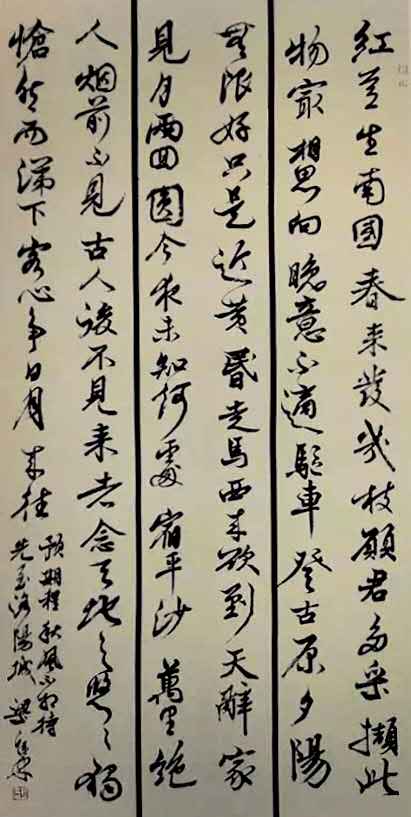 紅豆生南国春来發幾枝願君多采擷此
物最相思向晚意不適驅車登古原夕陽
無限好只是近黄昏走馬西来欲到天辭家
見月兩回圓今夜未知何處宿平沙萬里絶
人烟前不見古人後不見来者念天地之悠々獨
愴然而涕下客心争日月来往
預期程秋風不相待
先至洛陽城 梁